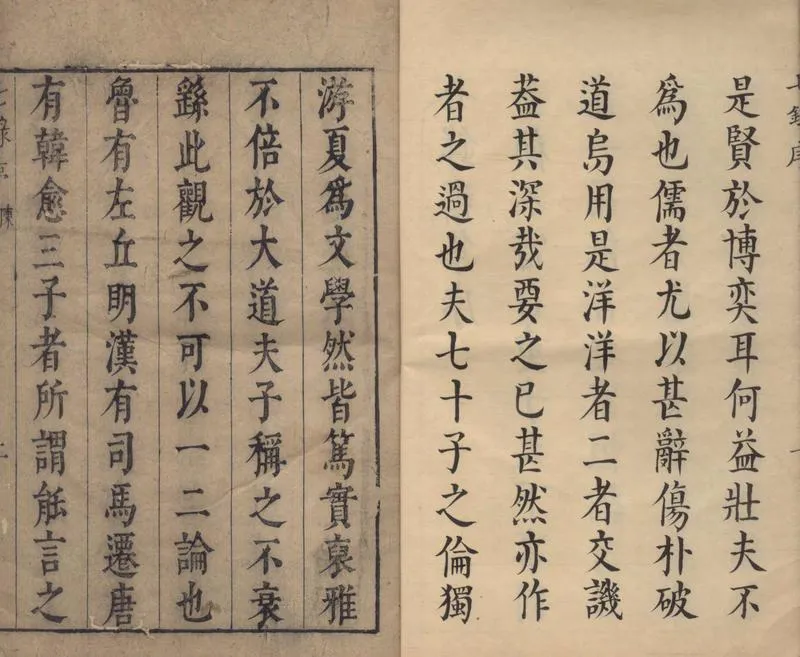 是賢於博奕耳何益壯夫不
爲也儒者尤以甚辭傷朴破
道烏用是洋洋者二者交譏
葢其深㢤要之已甚然亦作
者之過也夫七十子之倫獨
游夏爲文學然皆篤實裒雅
不倍於大道夫子稱之不衰
繇此觀之不可以一二論也
魯有左丘明漢有司馬遷唐
有韓愈三子者所謂能言之